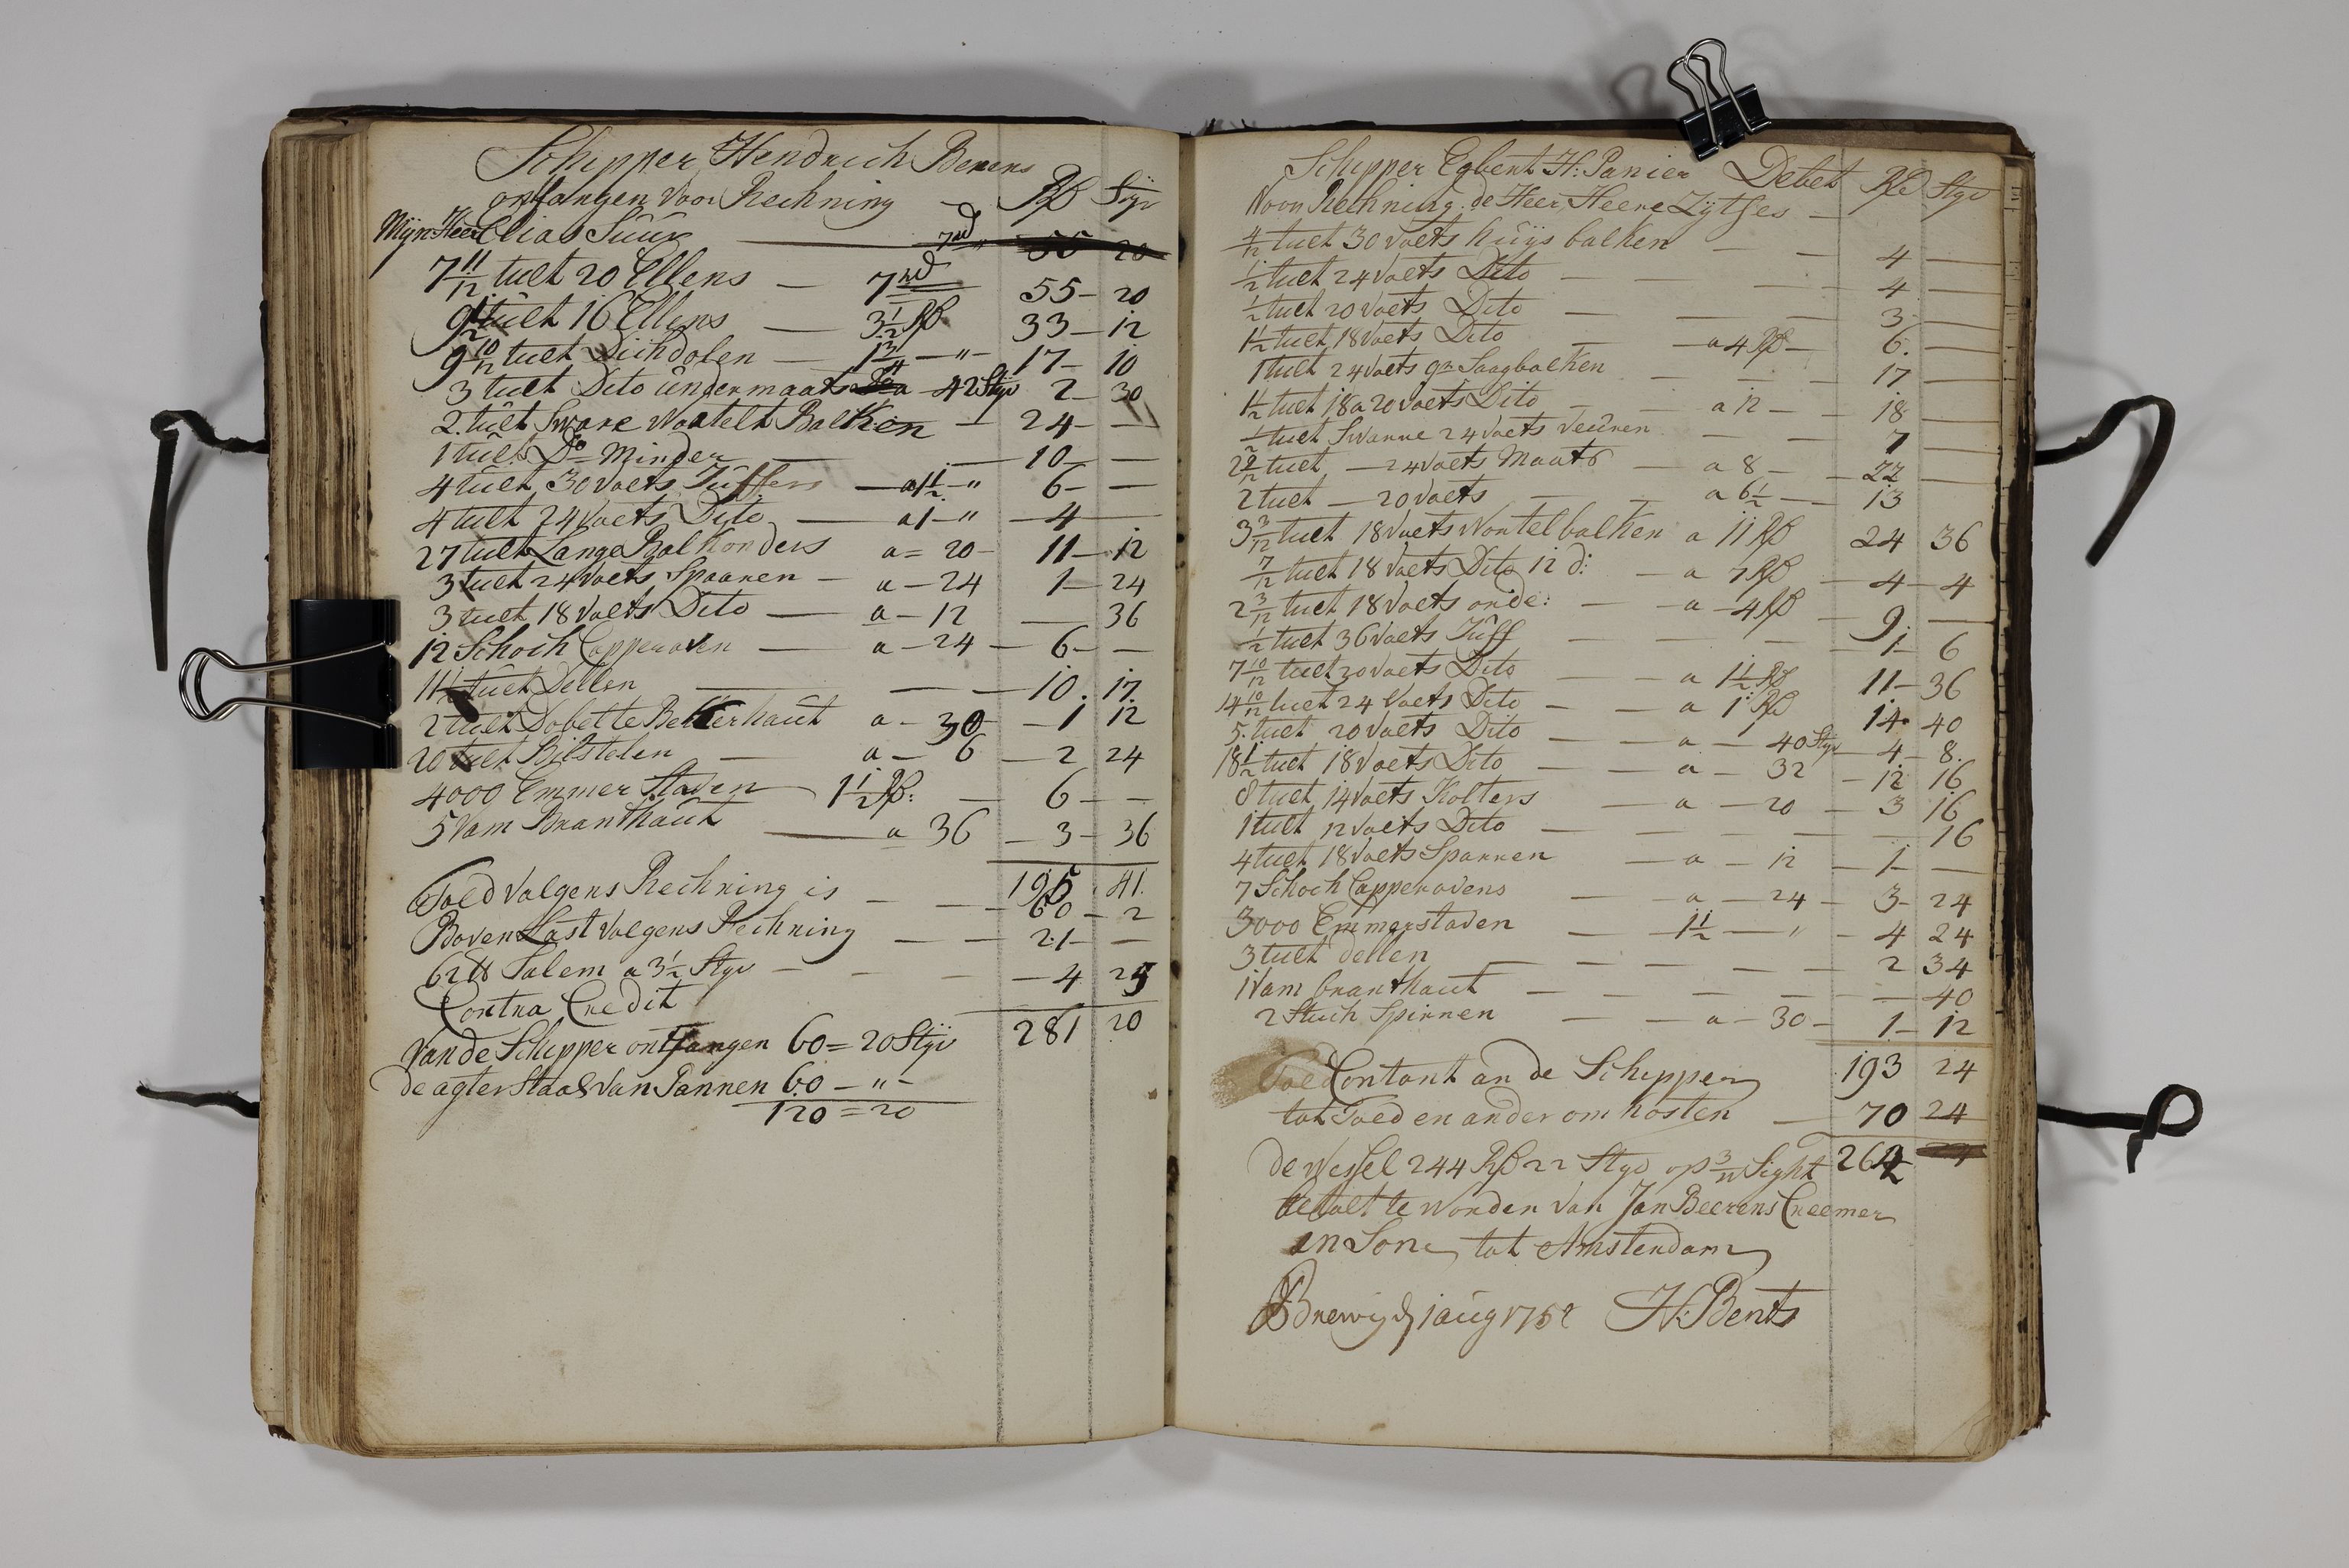 Schipper Hendrich Berens
ontfangen Voor Rechning — Rd Styv
Mijn Heer Elias Suur
7 11/12 tult 20 Ellens — 7 55 — 20
9 1/2 tult 16 Ellens — 3 1/2 Rd 33 — 12
9 10/12 tult Dichdolen — 1 3/4 — " — 17 — 10
3 tult Dito undermaats a — 42 Styv 2 — 30
2 tult Sware Wortelt Balken — 24 — —
1 tult Do Minder — 10 — —
4 tult 30 Voets Juffers — a 1 1/2 — " 6 — —
4 tult 24 Voets Dito — a 1 — " — 4 —
27 tult Lange Balkonders a = 20 — 11 — 12
3 tult 24 Voets Spaaren — a — 24 1 — 24
3 tult 18 Voets Dito — a — 12 — 36
12 Schoch Capperaven — a — 24 — 6 — —
11 1/2 tult Dellen — — 10 . 17
2 tult Dobelte Bekkerhaut a — 30 — 1 12
20 tult Bilstelen — a — 6 — 2 24
4000 Emmer Staven 1 1/2 Rd: — 6 — —
5 Vam Branthaut — a 36 — 3 — 36
195 . 41
Toed Valgens Rechning is — — 60 — 2
Boven Last Valgens Rechning — — 21 — —
62 ℔ Talem a 3 1/2 Styv — — — 4 25
Contra Credit 281 20
Van de Schipper ontfangen 60 = 20 Styv
de agterstaal Van Pannen 60 — " —
120 = 20
Schipper Egbert H: Panier Debet Rd Styv
Voor Rechning de Heer Heere Zytses —
4/12 tult 30 Voets huijs balken — — 4 —
1/2 tult 24 Voets Dito — — — 4 —
1/2 tult 20 Voets Dito — — — 3 —
1 1/2 tult 18 Voets Dito — a 4 Rd — 6. —
1 tult 24 Voets gr Saagbalken — — — 17 —
1 1/2 tult 18 a 20 Voets Dito — — a 12 — — 18 —
1/2 tult Swarre 24 Voets Veuren — — 7 —
2 9/12 tult — 24 Voets Maats — a 8 — — 22 —
2 tult — 20 Voets — — a 6 1/2 — — 13
3 3/12 tult 18 Voets Wortel balken a 11 Rd 24 36
7/12 tult 18 Voets Dito 12 d: — a 7 Rd — 4 — 4
2 3/12 tult 18 Voets onde: — — a — 4 Rd — 9. —
1/2 tult 36 Voets Juff — — — 1 — 6
7 10/12 tult 30 Voets Dito — — a 1 1/2 Rd 11 — 36
14 10/12 tult 24 Voets Dito — — a 1 Rd 14. 40
5. tult 20 Voets Dito — — a — 40 Styv — 4 — 8.
18 1/2 tult 18 Voets Dito — — a — 32 — 12 16
8 tult 14 Voets Kolters — a — 20 — 3 16
1 tult 12 Voets Dito — — — — — 16
4 tult 18 Voets Sparren — a — 12 — 1 — —
7 Schoch Capperavens — a — 24 — 3 — 24
3000 Emmerstaven — 1 1/2 — " — 4 24
3 tult dellen — — — — — 2 34
1 Vam branthaut — — — — — 40
2 Stuch Spirren — — a — 30 — 1 — 12
193 24
Toed Contant an de Schipper
tot Toed en ander om kosten — 70 24
de Wessel 244 Rd 22 Styv op 3/m Sight 264
betaelt te worden Van Jan Beerens Creemer
en Sone tot Amsterdam
H: Bents